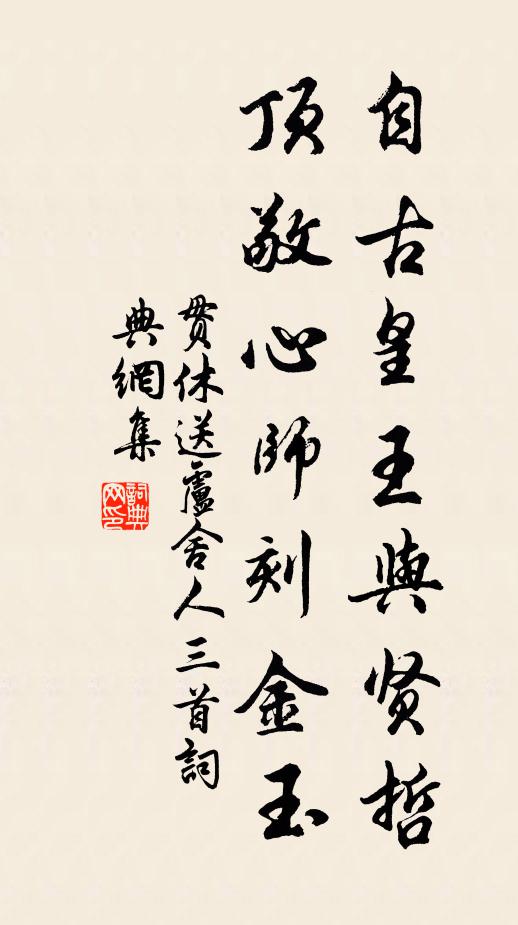 自古皇王與贤哲
頂敬心師刻金玉
贯休送盧舍人三首詞
典網集
詞典网印